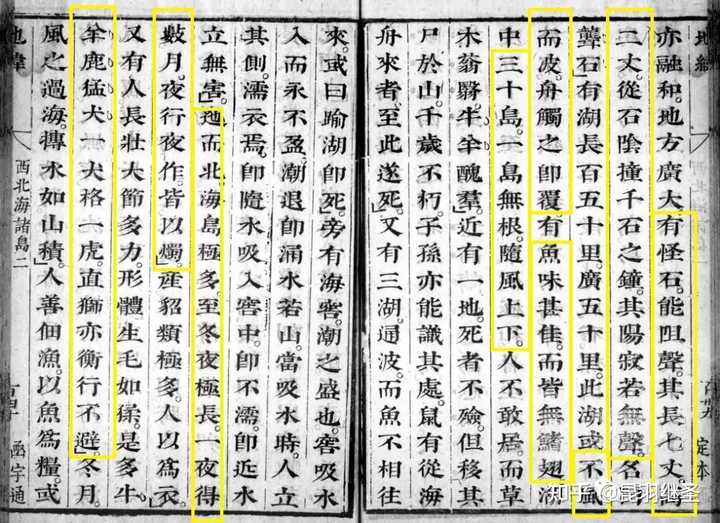 地緯
定本
亦融和。地方廣大有怪石能阻聲。其長七丈。高
二丈。從石陰撞千石之鐘。其陽寂若無聲。名曰
聾石」有湖長百五十里。廣五十里。此湖或不風
而波。舟觸之卽覆。有魚味甚佳。而皆無鰭翅。湖
中三十島。一島無根。隨風上下。人不敢居。而草
木蓊翳。牛羊醜羣」近有一地。死者不殮。但移其
尸於山。千歲不朽。子孫亦能識其處。鼠有從海
舟來者。至此遂死」又有三湖。通波。而魚不相往
來。或曰踰湖卽死」旁有海窖。潮之盛也。窖吸水
入而永不盈。潮退卽涌水若山。當吸水時。人立
其側。濡衣焉。卽隨水吸入窖中。卽不濡。卽近水
立無害。地而北海島極多。至冬夜極長。一夜得
數月。夜行夜作皆以燭。產貂類極多。人以爲衣」
又有人長壯大節多力。形體生毛如猱。是多牛
羊鹿猛犬 犬格一虎。直獅亦衡行不避」冬月。
風之過海。摶水如山積」人善佃漁。以魚爲糧。或
地緯
西北海諸島二
百四十
函宇通
知乎 @昆羽继圣